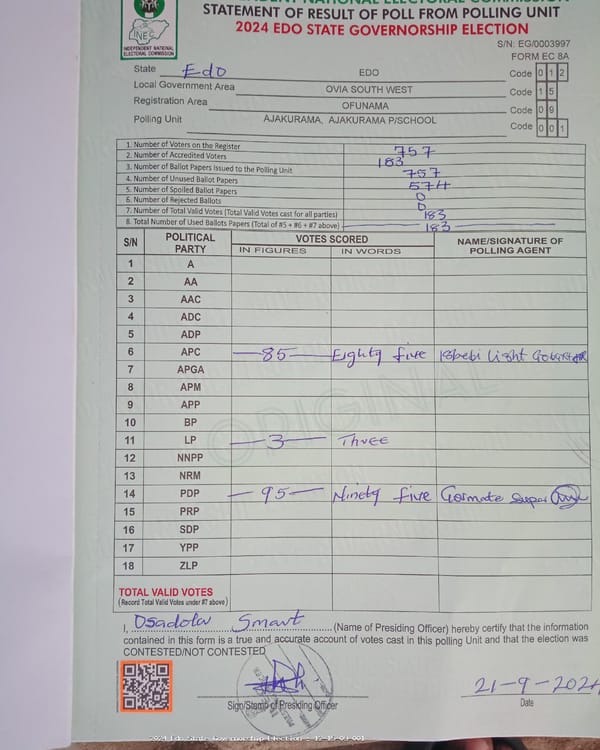 INDEPENDENT NATIONAL ELECTORAL COMMISSION
STATEMENT OF RESULT OF POLL FROM POLLING UNIT
2024 EDO STATE GOVERNORSHIP ELECTION
INEC
INDEPENDENT NATIONAL
ELECTORAL COMMISSION
S/N: EG/0003997
FORM EC 8A
State Edo EDO Code 0 1 2
Local Government Area OVIA SOUTH WEST Code 1 5
Registration Area OFUNAMA Code 0 9
Polling Unit AJAKURAMA, AJAKURAMA P/SCHOOL Code 0 0 1
1. Number of Voters on the Register 757
2. Number of Accredited Voters 183
3. Number of Ballot Papers Issued to the Polling Unit 757
4. Number of Unused Ballot Papers 574
5. Number of Spoiled Ballot Papers 0
6. Number of Rejected Ballots 0
7. Number of Total Valid Votes (Total Valid Votes cast for all parties) 183
8. Total Number of Used Ballots Papers (Total of #5 + #6 + #7 above) 183
S/N POLITICAL PARTY VOTES SCORED NAME/SIGNATURE OF POLLING AGENT
IN FIGURES IN WORDS
1 A
2 AA
3 AAC
4 ADC
5 ADP
6 APC 85 Eighty five Light
7 APGA
8 APM
9 APP
10 BP
11 LP 3 Three
12 NNPP
13 NRM
14 PDP 95 Ninety five
15 PRP
16 SDP
17 YPP
18 ZLP
ORIGINAL
TOTAL VALID VOTES
(Record Total Valid Votes under #7 above)
I, Osadolor Smart (Name of Presiding Officer) hereby certify that the information
contained in this form is a true and accurate account of votes cast in this polling Unit and that the election was
CONTESTED/NOT CONTESTED
21-9-2024
Sign/Stamp of Presiding Officer Date
2024 Edo State Governorship Election - 12-15-09-001